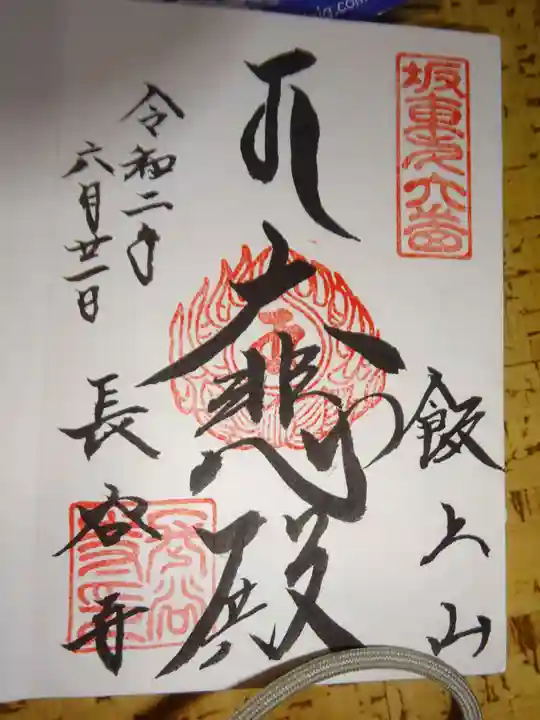 坂東第六番
飯上山
大悲殿
令和二年
六月廿一日
長谷寺